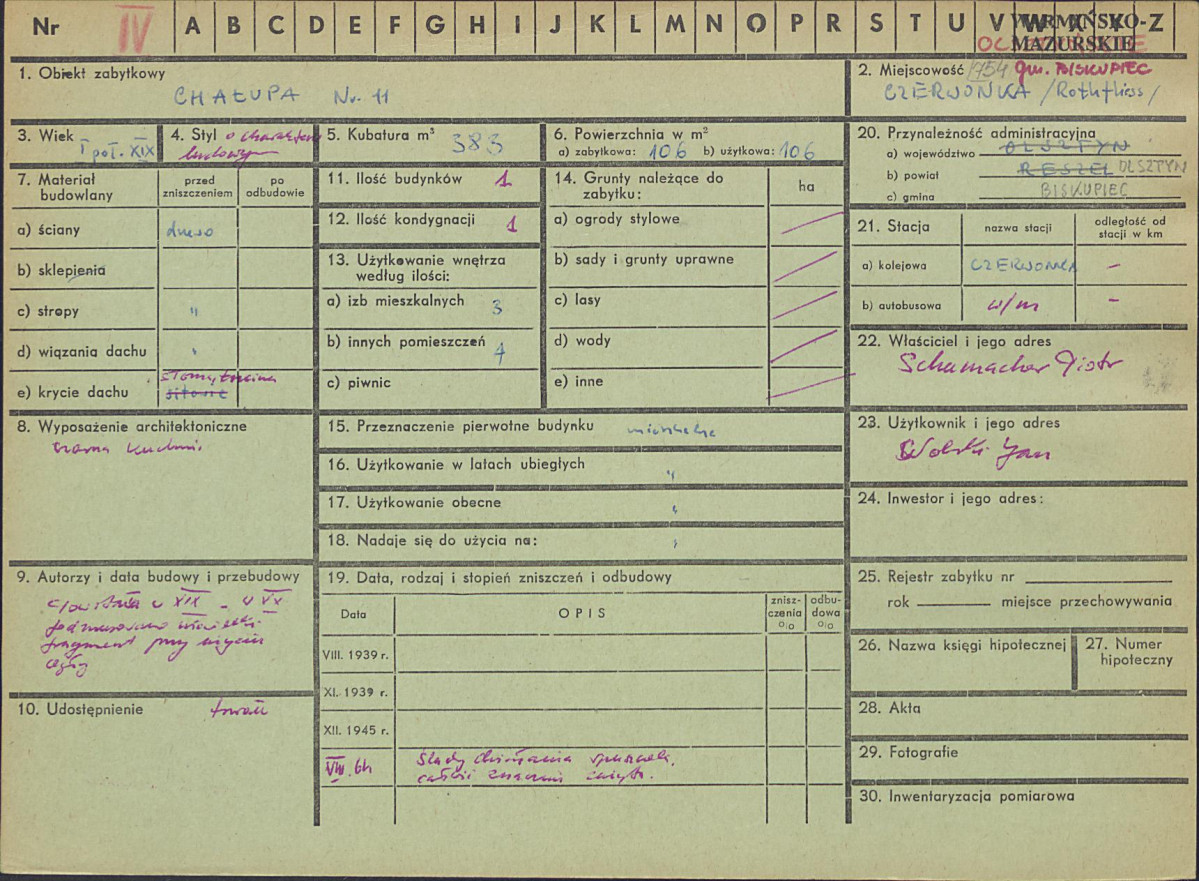 Nr IV A B C D E F G H I J K L M N O P R S T U V W X Y Z
WARMIŃSKO-
MAZURSKIE
1. Obiekt zabytkowy
CHAŁUPA Nr. 11
2. Miejscowość 1754 gm. BISKUPIEC
CZERWONKA /Rothfliess/
3. Wiek
I poł. XIX
4. Styl o charakterze
ludowym
5. Kubatura m³ 383
6. Powierzchnia w m²
a) zabytkowa: 106 b) użytkowa: 106
7. Materiał
budowlany
przed
zniszczeniem
po
odbudowie
a) ściany drewo
b) sklepienia
c) stropy "
d) wiązania dachu "
e) krycie dachu
8. Wyposażenie architektoniczne
czarna kuchnia
9. Autorzy i data budowy i przebudowy
fragment przy użyciu
cegły
10. Udostępnienie
11. Ilość budynków 1
12. Ilość kondygnacji 1
13. Użytkowanie wnętrza
według ilości:
a) izb mieszkalnych 3
b) innych pomieszczeń 4
c) piwnic
14. Grunty należące do
zabytku:
ha
a) ogrody stylowe
b) sady i grunty uprawne
c) lasy
d) wody
e) inne
15. Przeznaczenie pierwotne budynku mieszkalne
16. Użytkowanie w latach ubiegłych "
17. Użytkowanie obecne "
18. Nadaje się do użycia na: "
19. Data, rodzaj i stopień zniszczeń i odbudowy
Data
OPIS
znisz-
czenia
%
odbu-
dowa
%
VIII. 1939 r.
XI. 1939 r.
XII. 1945 r.
VIII. 64 Ślady działania
20. Przynależność administracyjna
a) województwo OLSZTYN
b) powiat RESZEL OLSZTYN
c) gmina BISKUPIEC
21. Stacja
nazwa stacji
odległość od
stacji w km
a) kolejowa CZERWONKA –
b) autobusowa w/m –
22. Właściciel i jego adres
Schumacher Piotr
23. Użytkownik i jego adres
Wolski Jan
24. Inwestor i jego adres:
25. Rejestr zabytku nr
rok miejsce przechowywania
26. Nazwa księgi hipotecznej
27. Numer
hipoteczny
28. Akta
29. Fotografie
30. Inwentaryzacja pomiarowa